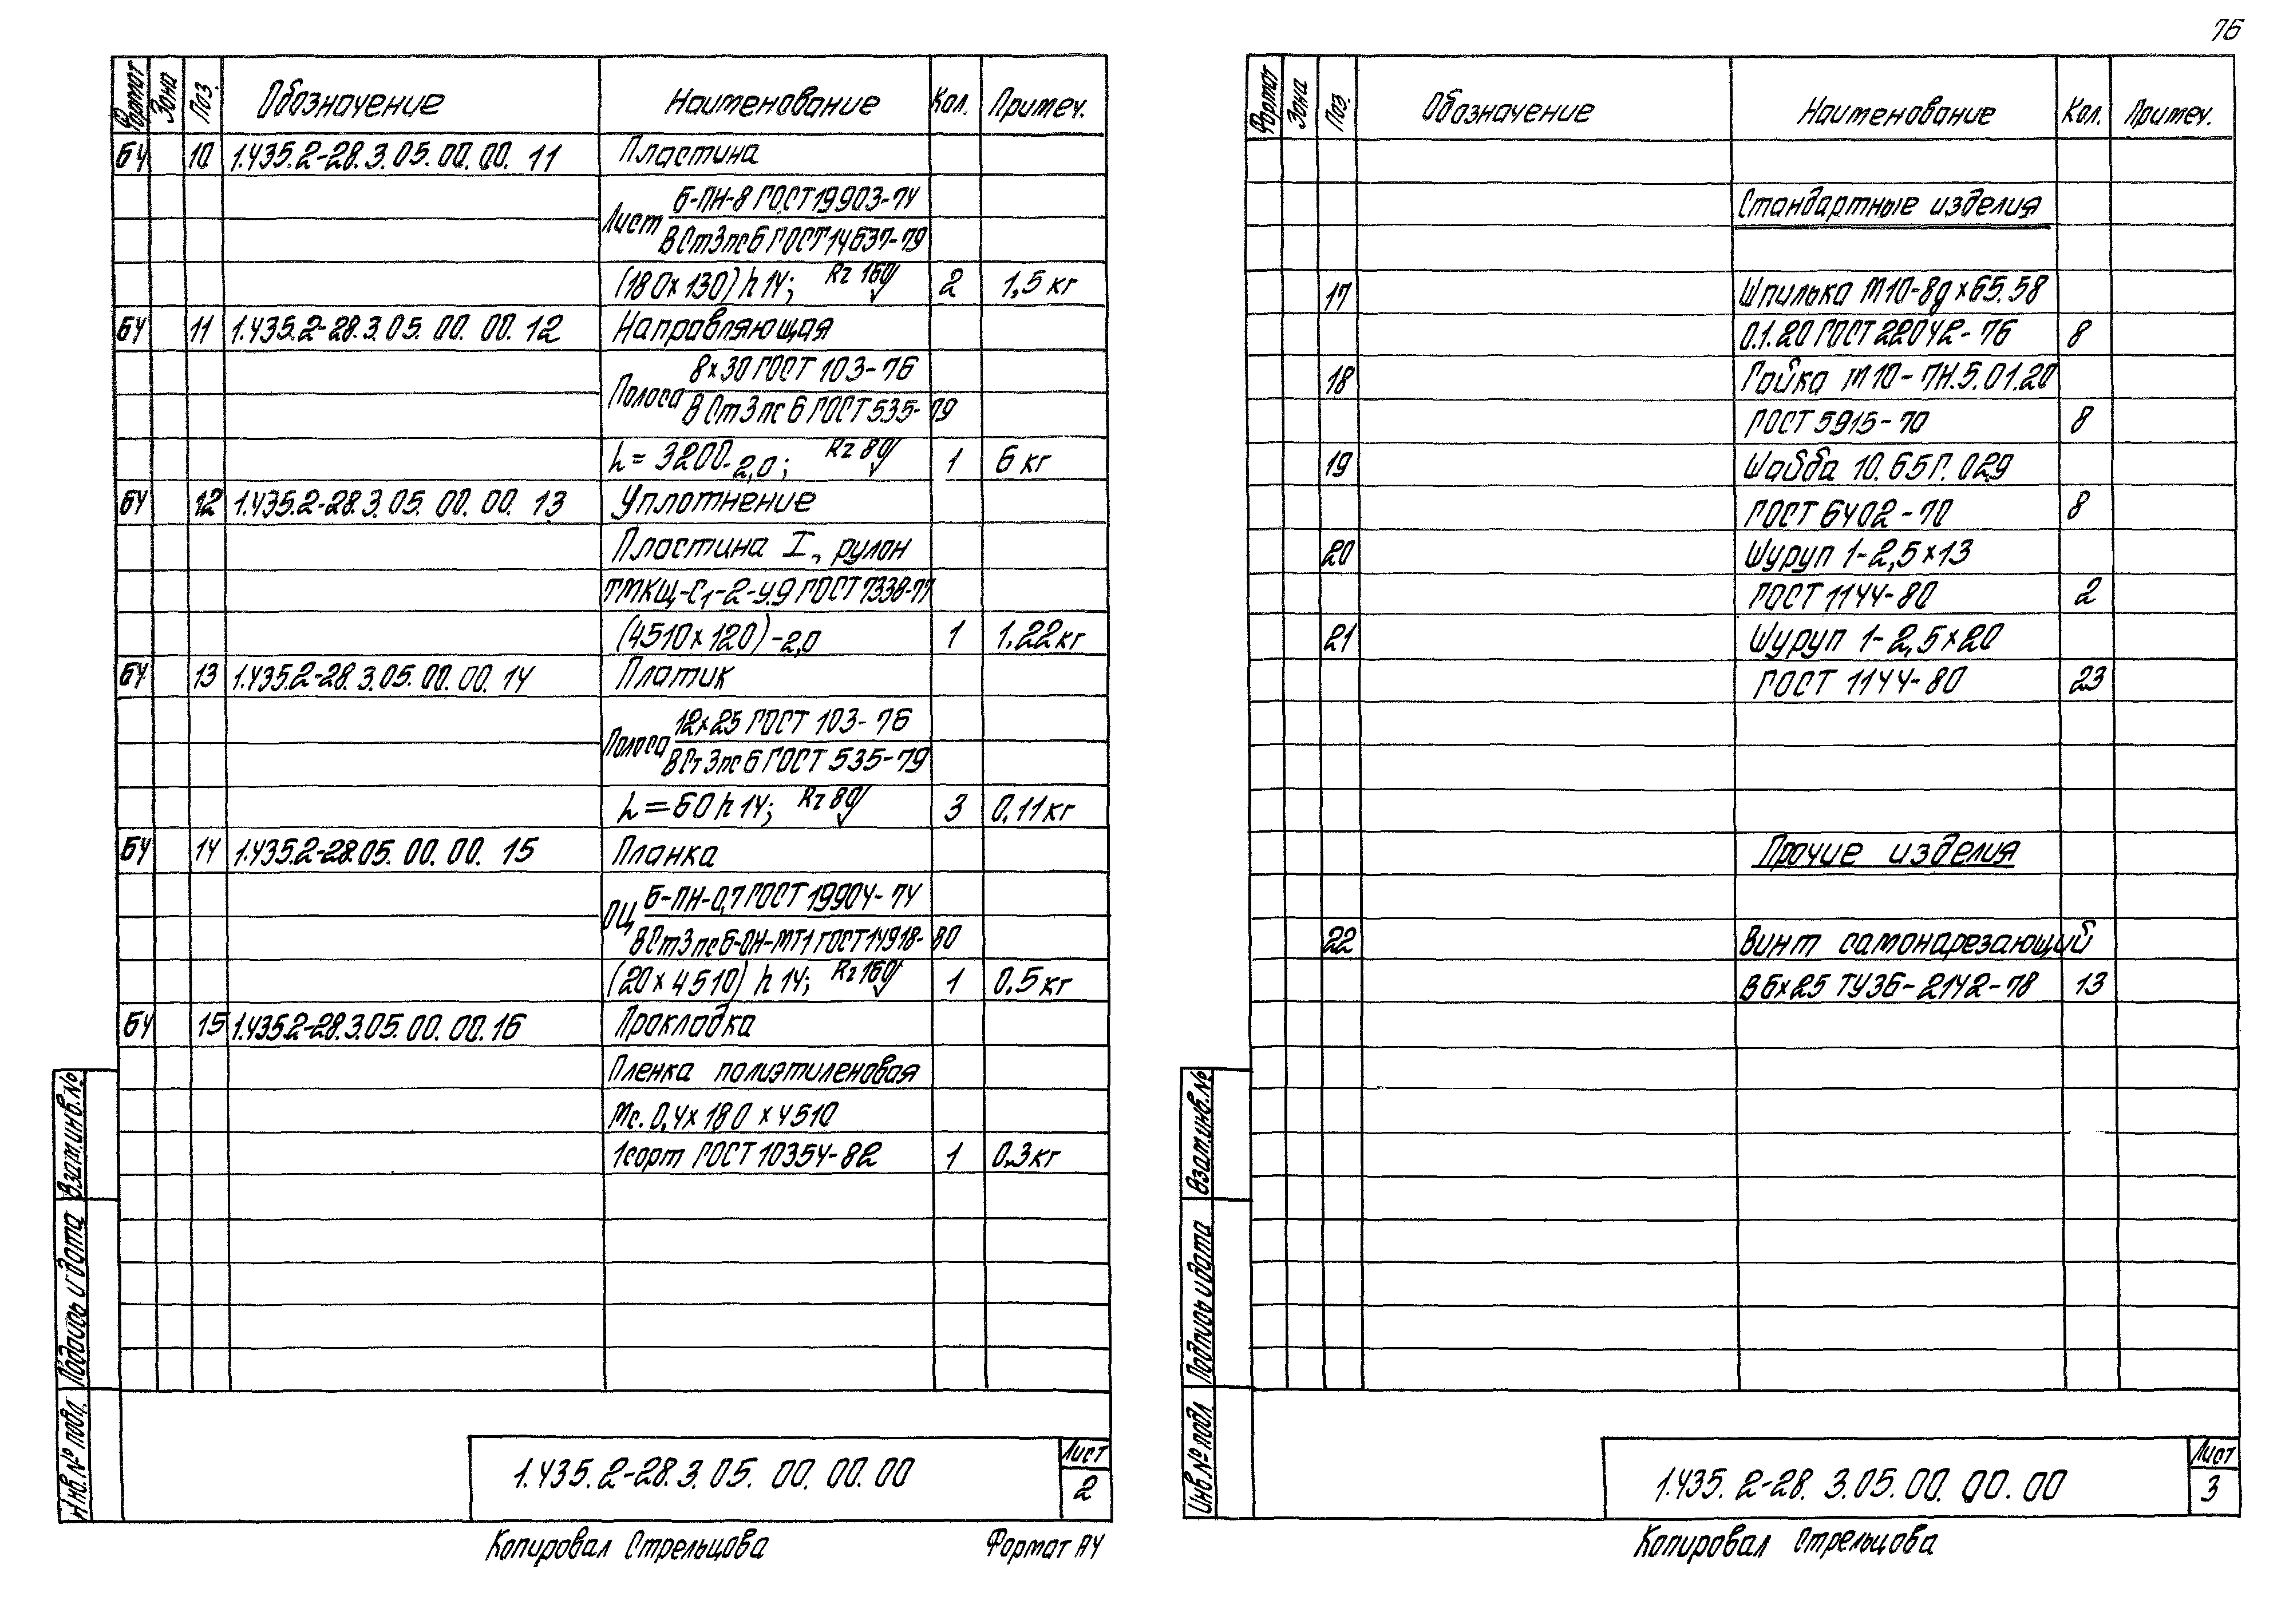 76
Формат Зона Поз. Обозначение Наименование Кол. Примеч.
БЧ 10 1.435.2-28.3.05.00.00. 11 Пластина
Б-ПН-8 ГОСТ 19903-74
Лист
ВСт3пс6 ГОСТ 14637-79
(180х130) h14; Rz 160 2 1,5 кг
БЧ 11 1.435.2-28.3.05.00.00.12 Направляющая
8х30 ГОСТ 103-76
Полоса
ВСт3пс6 ГОСТ 535-79
L= 3200-2,0; Rz 80 1 6 кг
БЧ 12 1.435.2-28.3.05.00.00.13 Уплотнение
Пластина I, рулон
ТМКЩ-С1-2-4.9 ГОСТ 7338-77
(4510х120)-2,0 1 1,22кг
БЧ 13 1.435.2-28.3.05.00.00.14 Платик
12х25 ГОСТ 103-76
Полоса
ВСт3пс6 ГОСТ 535-79
L=60h14; Rz 80 3 0,11кг
БЧ 14 1.435.2-28.05.00.00. 15 Планка
Б-ПН-0,7 ГОСТ 19904-74
ОЦ
ВСт3пс6-ОН-МТ1 ГОСТ 14918-80
(20х4510) h14; Rz 160 1 0,5кг
БЧ 15 1.435.2-28.3.05.00.00.16 Прокладка
Пленка полиэтиленовая
Мс. 0,4х180х4510
1сорт ГОСТ 10354-82 1 0,3кг
Взам.инв.№
Подпись и дата
Инв.№ подл.
1.435.2-28.3.05.00.00.00
Лист
2
Копировал Стрельцова Формат А4
Формат Зона Поз. Обозначение Наименование Кол. Примеч.
Стандартные изделия
17 Шпилька М10-8gх65.58
0.1.20 ГОСТ 22042-76 8
18 Гайка М10-7Н.5.01.20
ГОСТ 5915-70 8
19 Шайба 10.65Г.029
ГОСТ 6402-70 8
20 Шуруп 1-2,5х13
ГОСТ 1144-80 2
21 Шуруп 1-2,5х20
ГОСТ 1144-80 23
Прочие изделия
22 Винт самонарезающий
В6х25 ТУ36-2142-78 13
Взам.инв.№
Подпись и дата
Инв.№ подл.
1.435.2-28.3.05.00.00.00
Лист
3
Копировал Стрельцова